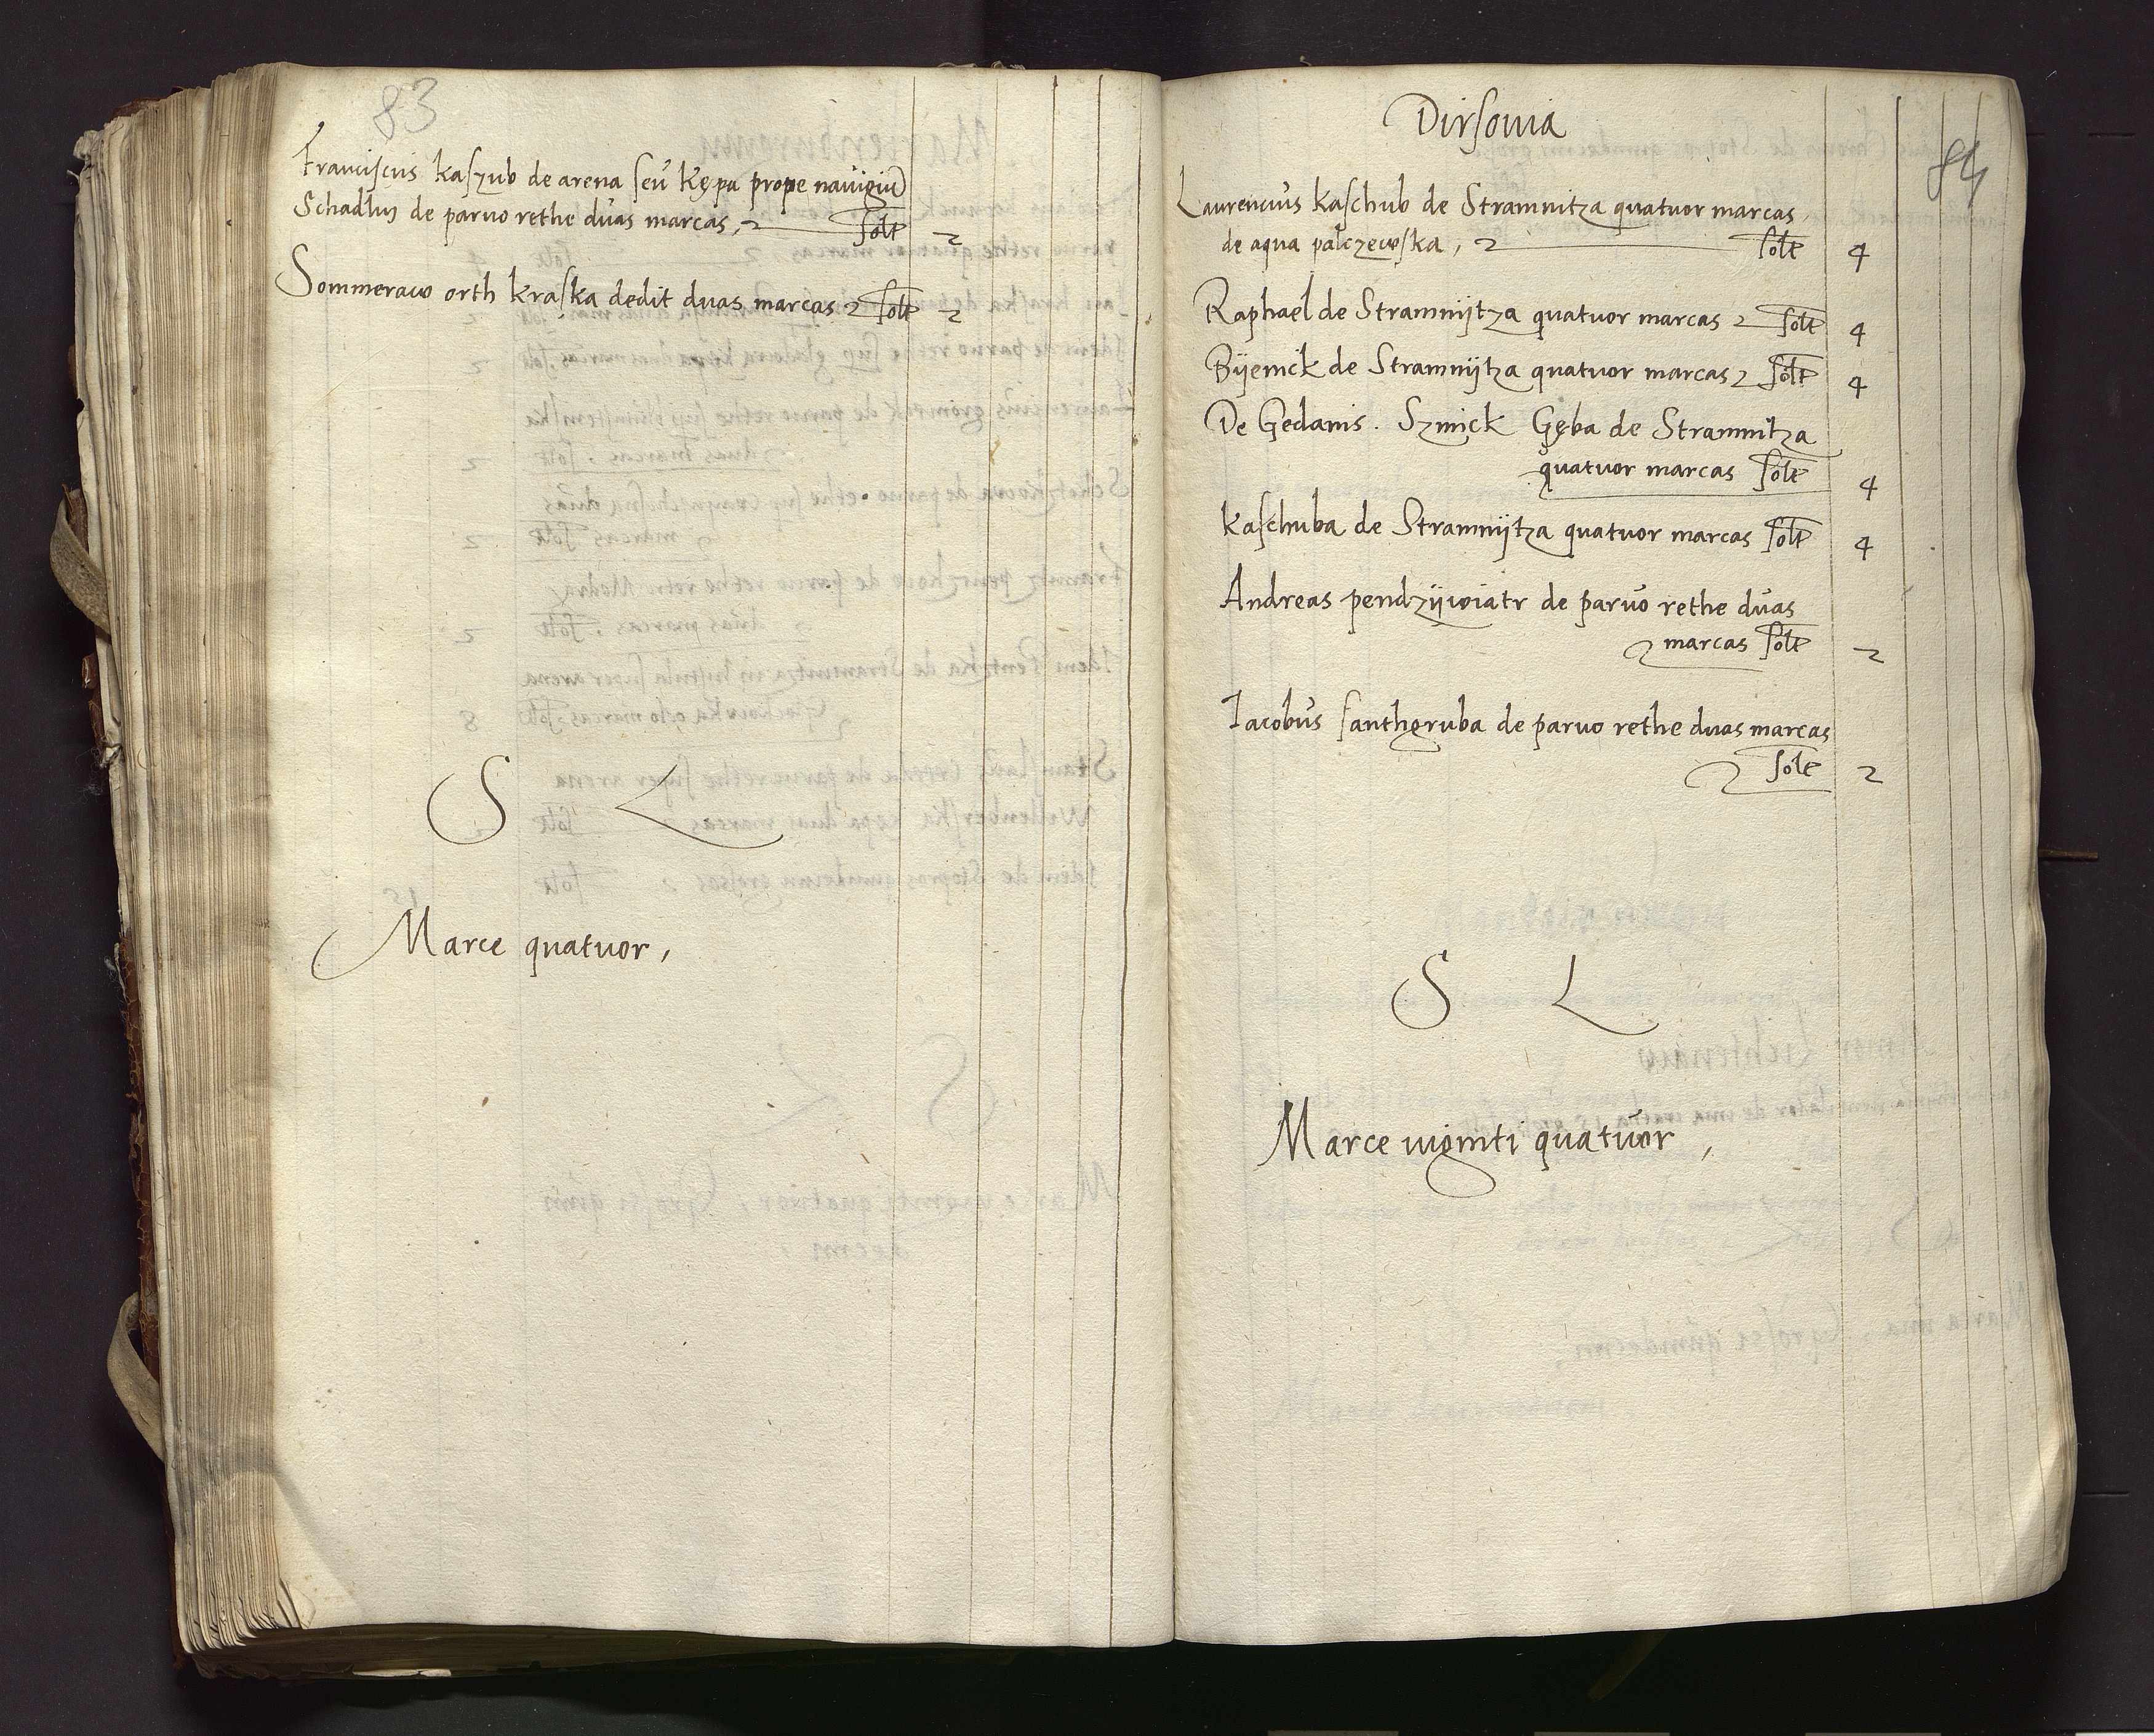 83
Franciscus kaszub de arena seu Kępa prope nauigiũ
Schadluj de paruo rethe duas marcas, solt 2
Sommeraw orth kraska dedit duas marcas solt 2
S L
Marce quatuor,
84
Dirsouia
Laurencius kaschub de Stramnitza quatuor marcas,
de aqua palczewska, solt 4
Raphael de Stramnijtza quatuor marcas solt 4
Bijenick de Stramnijtza quatuor marcas solt 4
De Gedanis. Szmick Gęba de Stramnitza
quatuor marcas solt 4
kaschuba de Stramnijtza quatuor marcas solt 4
Andreas pendzijwiatr de paruo rethe duas
marcas solt 2
Iacobus santhgruba de paruo rethe duas marcas
solt 2
S L
Marce viginti quatuor,